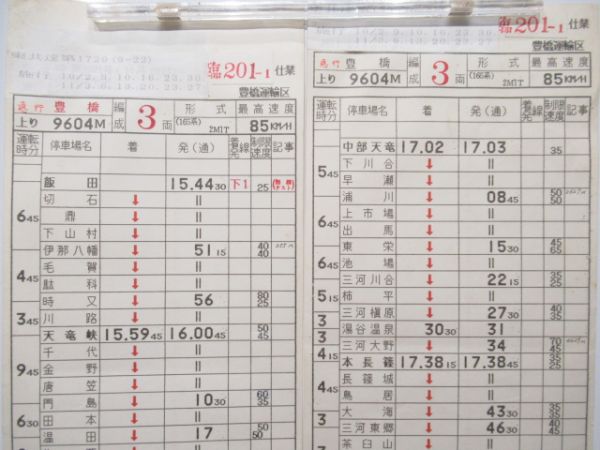 臨201-1 仕業
豊橋運輸区
急行 豊橋 編成 3両 形式 (165系) 2M1T 最高速度
上り 9604M 85KM/H
運転時分 停車場名 着 発(通) 着発線 制限速度 記事
飯田 15.44 30 下1 25
切石 ↓ 〃
6 45 鼎 ↓ 〃
下山村 ↓ 〃
伊那八幡 ↓ 51 15 40 40
4 45 毛賀 ↓ 〃
駄科 ↓ 〃
時又 ↓ 56 80 25
3 45 川路 ↓ 〃
天竜峡 15.59 45 16.00 45 50 45
千代 ↓ 〃
9 45 金野 ↓ 〃
唐笠 ↓ 〃
門島 ↓ 10 30 60 35
6 30 田本 ↓ 〃
温田 ↓ 17 50 50
臨201-1 仕業
豊橋運輸区
急行 豊橋 編成 3両 形式 (165系) 2M1T 最高速度
上り 9604M 85KM/H
運転時分 停車場名 着 発(通) 着発線 制限速度 記事
中部天竜 17.02 17.03 35
5 45 下川合 ↓ 〃
早瀬 ↓ 〃
浦川 ↓ 08 45 50 50
6 45 上市場 ↓ 〃
出馬 ↓ 〃
東栄 ↓ 15 30 45 65
6 45 池場 ↓ 〃
三河川合 ↓ 22 15 35 25
5 15 柿平 ↓ 〃
三河槙原 ↓ 27 30 40 35
3 湯谷温泉 30 30 31
3 三河大野 ↓ 34 70 45
4 15 本長篠 17.38 15 17.38 45 35 35
4 45 長篠城 ↓ 〃
鳥居 ↓ 〃
大海 ↓ 43 30 35 35
3 三河東郷 ↓ 46 30 40 45
茶臼山 ↓ 〃